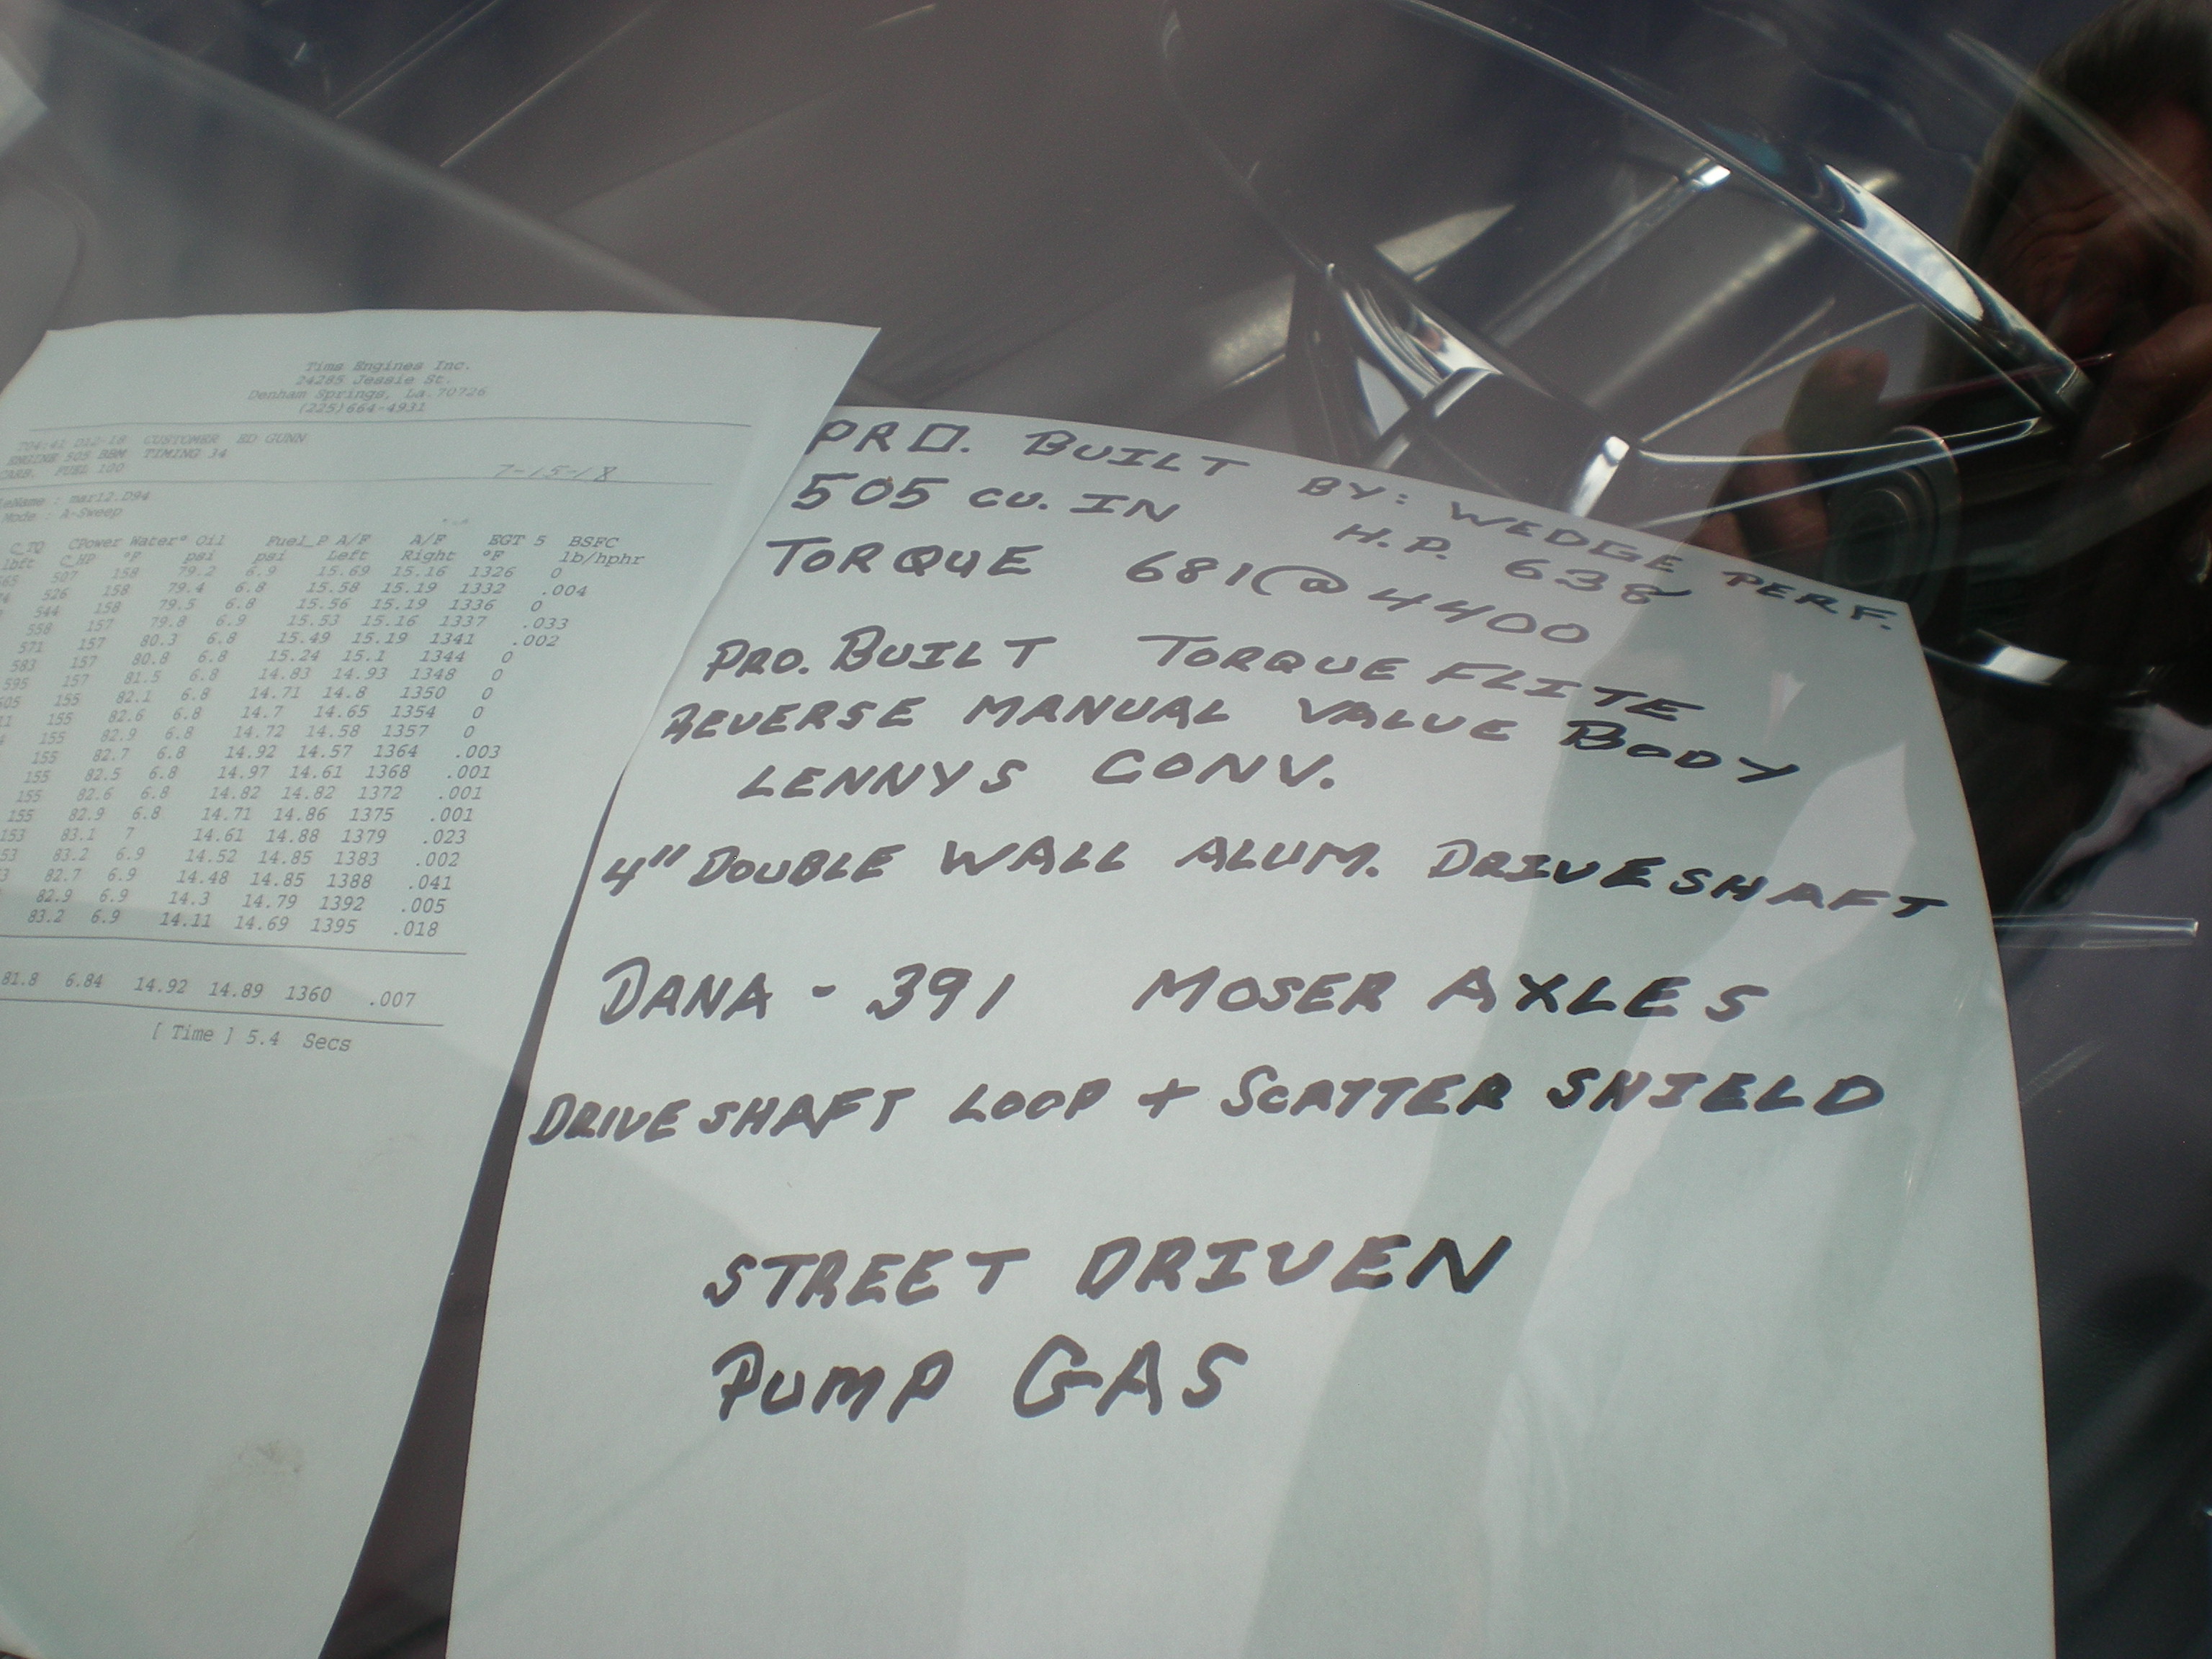 Tims Engines Inc.
24285 Jessie St.
Denham Springs, La 70726
(225)664-4931
CUSTOMER ED GUNN
ENGINE 505 BBM TIMING 34
CARB. FUEL 100
7-15-18
: mar12.D94
Mode : A-Sweep
C_TQ CPower Water° Oil Fuel_P A/F A/F EGT 5 BSFC
lbft C_HP °F psi psi Left Right °F lb/hphr
507 158 79.2 6.9 15.69 15.16 1326 0
526 158 79.4 6.8 15.58 15.19 1332 .004
544 158 79.5 6.8 15.56 15.19 1336 0
558 157 79.8 6.9 15.53 15.16 1337 .033
571 157 80.3 6.8 15.49 15.19 1341 .002
583 157 80.8 6.8 15.24 15.1 1344 0
595 157 81.5 6.8 14.83 14.93 1348 0
155 82.1 6.8 14.71 14.8 1350 0
155 82.6 6.8 14.7 14.65 1354 0
155 82.9 6.8 14.72 14.58 1357 0
155 82.7 6.8 14.92 14.57 1364 .003
155 82.5 6.8 14.97 14.61 1368 .001
155 82.6 6.8 14.82 14.82 1372 .001
155 82.9 6.8 14.71 14.86 1375 .001
153 83.1 7 14.61 14.88 1379 .023
83.2 6.9 14.52 14.85 1383 .002
82.7 6.9 14.48 14.85 1388 .041
82.9 6.9 14.3 14.79 1392 .005
83.2 6.9 14.11 14.69 1395 .018
81.8 6.84 14.92 14.89 1360 .007
[ Time ] 5.4 Secs
PRO. BUILT BY: WEDGE PERF.
505 CU. IN H.P. 638
TORQUE 681@4400
PRO. BUILT TORQUE FLITE
REVERSE MANUAL VALUE BODY
LENNYS CONV.
4" DOUBLE WALL ALUM. DRIVESHAFT
DANA - 391 MOSER AXLES
DRIVESHAFT LOOP + SCATTER SHIELD
STREET DRIVEN
PUMP GAS